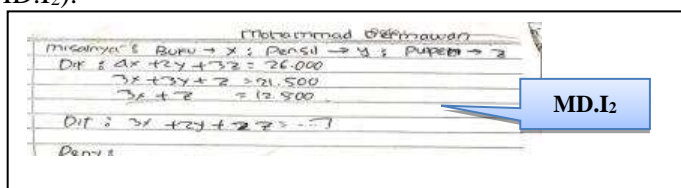 MD.I₂).
Mohammad Dermawan
misalnya : Buku → x ; Pensil → y ; Pulpen → z
Dik : 4x + 2y + 3z = 26.000
3x + 3y + z = 21.500
3x + z = 12.500
MD.I₂
Dit : 3x + 2y + 2z = ...?
Peny :